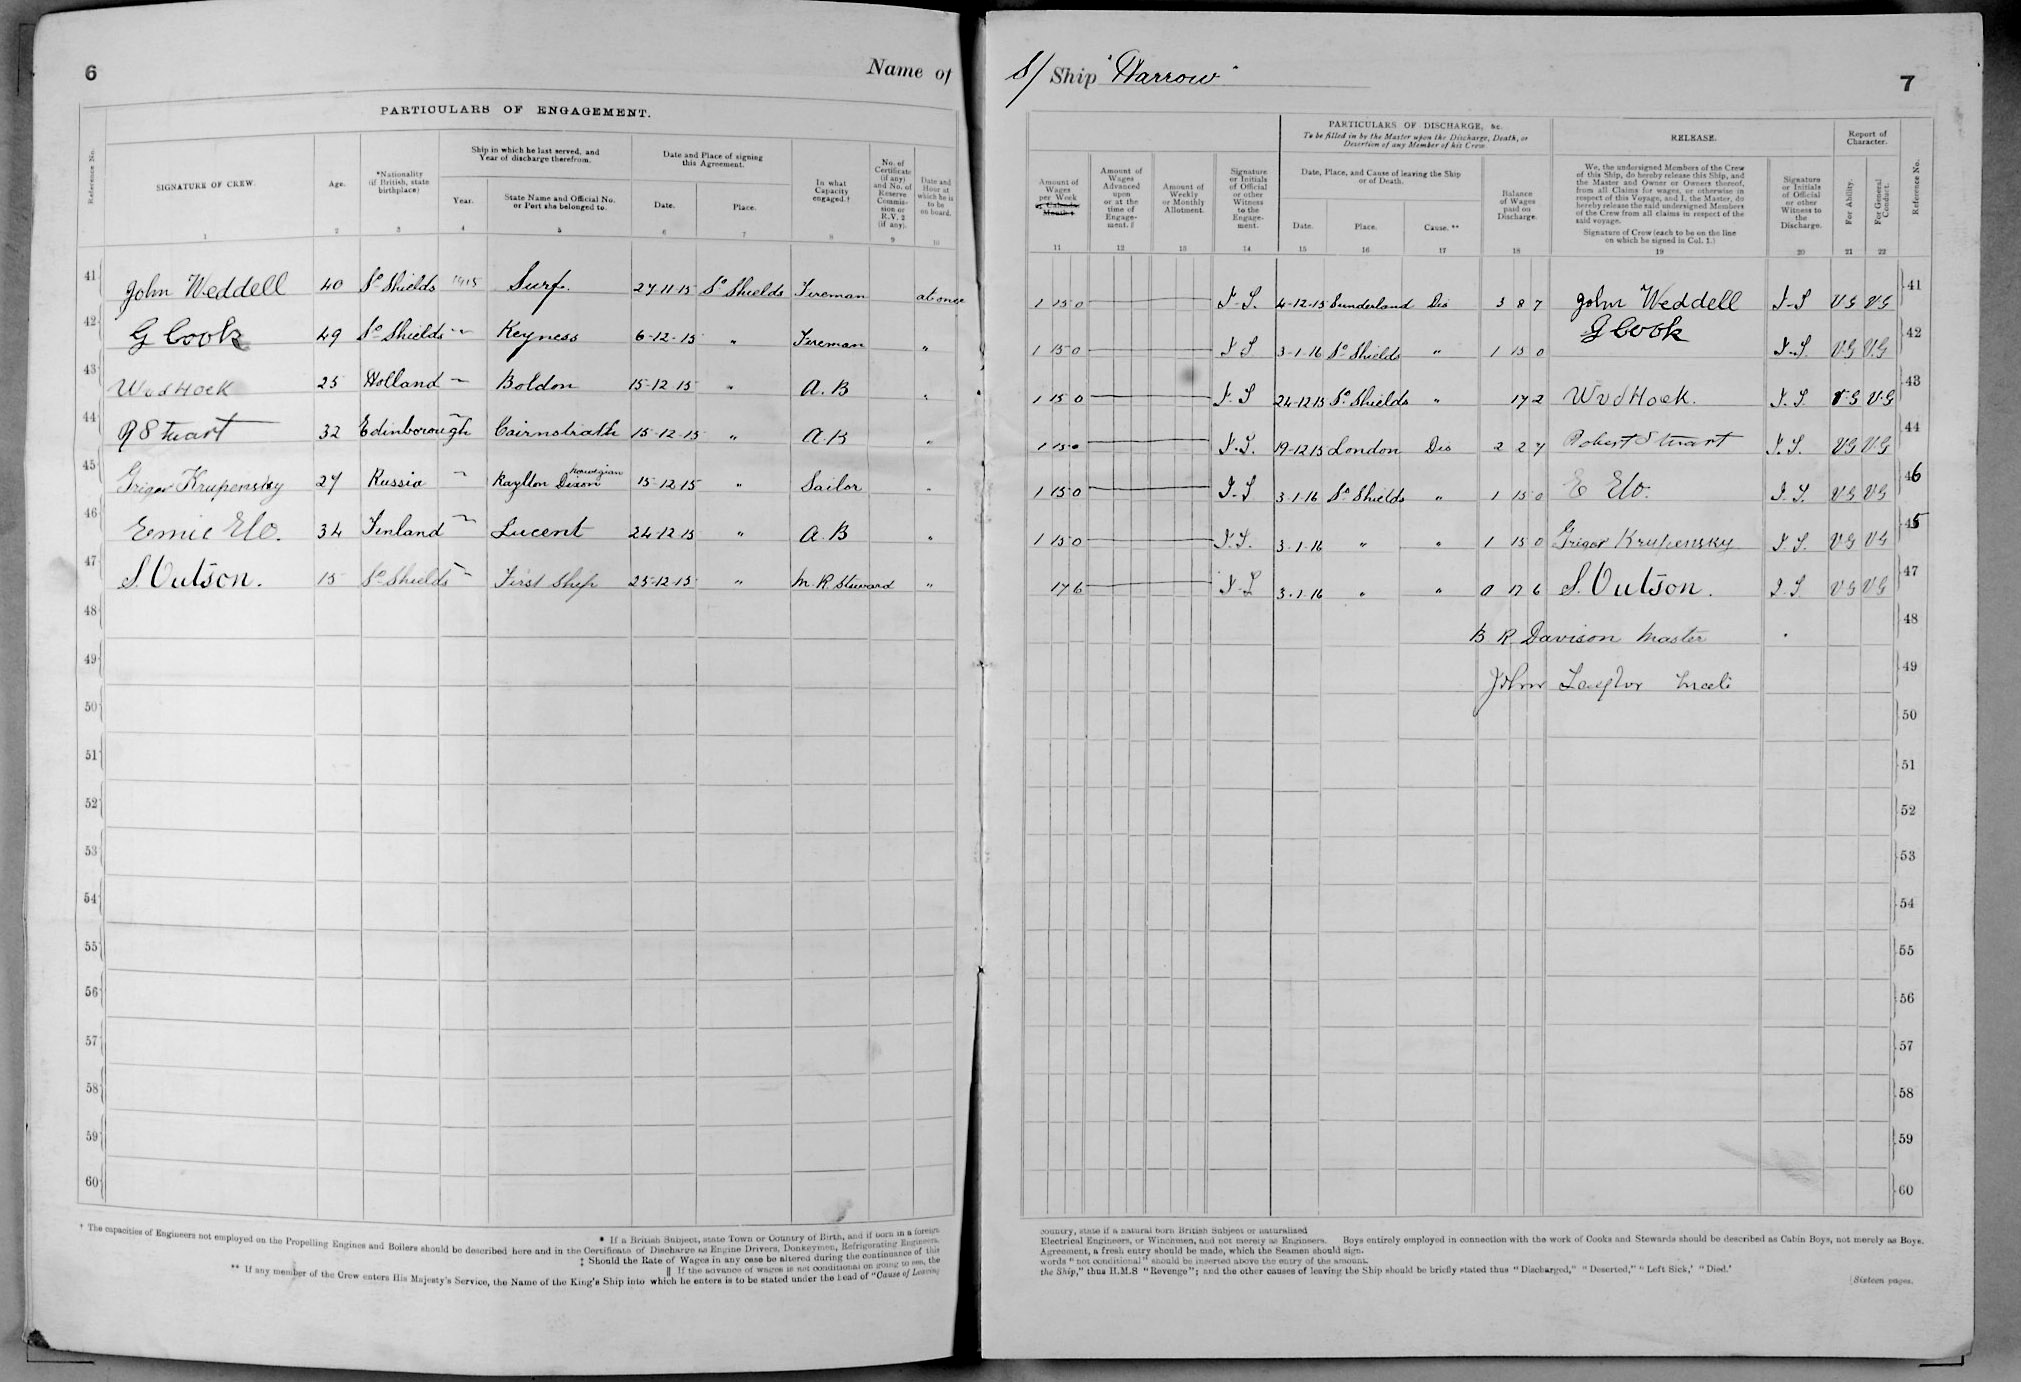 6
Name of
PARTICULARS OF ENGAGEMENT.
Reference No.
SIGNATURE OF CREW.
Age.
*Nationality
(if British, state
birthplace)
Ship in which he last served, and
Year of discharge therefrom.
Year.
State Name and Official No.
or Port she belonged to.
Date and Place of signing
this Agreement.
Date.
Place.
In what
Capacity
engaged.†
No. of
Certificate
(if any)
and No. of
Reserve
Commis-
sion or
R.V. 2
(if any).
Date and
Hour at
which he is
to be
on board.
1 2 3 4 5 6 7 8 9 10
41 John Weddell 40 So Shields 1915 Surf. 27 11 15 So Shields Fireman at once
42 G Cook 49 So Shields " Keyness 6-12-15 " Fireman "
43 W vd Hoek 25 Holland " Boldon 15-12-15 " A.B "
44 R Stuart 32 Edinborough " Cairnstrath 15-12-15 " A.B "
45 Grigor Krupensky 27 Russia " Raylton Dixon norwegian 15-12-15 " Sailor "
46 Elo. 34 Finland " Lucent 24-12-15 " A.B "
47 S. Outson. 15 So Shields " First Ship 25-12-15 " M. R. Steward "
48
49
50
51
52
53
54
55
56
57
58
59
60
* If a British Subject, state Town or Country of Birth, and if born in a foreign
† The capacities of Engineers not employed on the Propelling Engines and Boilers should be described here and in the Certificate of Discharge as Engine Drivers, Donkeymen, Refrigerating Engineers,
‡ Should the Rate of Wages in any case be altered during the continuance of this
|| If the advance of wages is not conditional on going to sea, the
** If any member of the Crew enters His Majesty's Service, the Name of the King's Ship into which he enters is to be stated under the head of "Cause of Leaving
S/ Ship "Harrow"
7
PARTICULARS OF DISCHARGE, &c.
To be filled in by the Master upon the Discharge, Death, or
Desertion of any Member of his Crew
RELEASE.
Report of
Character.
Amount of
Wages
per Week
or Calendar
Month ‡
Amount of
Wages
Advanced
upon
or at the
time of
Engage-
ment. ||
Amount of
Weekly
or Monthly
Allotment.
Signature
or Initials
of Official
or other
Witness
to the
Engage-
ment.
Date, Place, and Cause of leaving the Ship
or of Death.
Date.
Place.
Cause. **
Balance
of Wages
paid on
Discharge.
We, the undersigned Members of the Crew
of this Ship, do hereby release this Ship, and
the Master and Owner or Owners thereof,
from all Claims for wages, or otherwise in
respect of this Voyage, and I, the Master, do
hereby release the said undersigned Members
of the Crew from all claims in respect of the
said voyage.
Signature of Crew (each to be on the line
on which he signed in Col. 1.)
Signature
or Initials
of Official
or other
Witness to
the
Discharge.
For Ability.
For General
Conduct.
Reference No.
11 12 13 14 15 16 17 18 19 20 21 22
1 15 0 4-12-15 Sunderland Dis 3 8 7 John Weddell V G V G 41
1 15 0 3-1-16 So Shields " 1 15 0 G Cook V G V G 42
1 15 0 24-12 15 So Shields " 17 2 W vd Hoek. V G V G 43
1 15 0 19-12 15 London Dis 2 2 7 Robert Stuart V G V G 44
1 15 0 3-1-16 So Shields " 1 15 0 E Elo. V G V G 46
1 15 0 3-1-16 " " 1 15 0 Grigor Krupensky V G V G 45
17 6 3-1-16 " " 0 17 6 S. Outson. V G V G 47
B R Davison Master 48
John 49
50
51
52
53
54
55
56
57
58
59
60
country, state if a natural born British Subject or naturalized
Electrical Engineers, or Winchmen, and not merely as Engineers. Boys entirely employed in connection with the work of Cooks and Stewards should be described as Cabin Boys, not merely as Boys.
Agreement, a fresh entry should be made, which the Seamen should sign.
words "not conditional" should be inserted above the entry of the amount.
the Ship," thus H.M.S "Revenge"; and the other causes of leaving the Ship should be briefly stated thus "Discharged," "Deserted," "Left Sick,' "Died.'
[Sixteen pages.